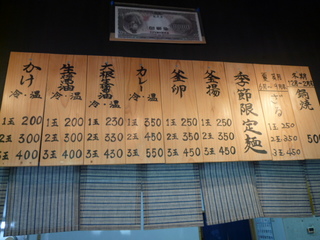 かけ
冷・温
1玉 200
2玉 300
3玉 400
生醤油
冷・温
1玉 200
2玉 300
3玉 400
大根醤油
冷・温
1玉 230
2玉 330
3玉 430
カレー
冷・温
1玉 350
2玉 450
3玉 550
釜卵
1玉 250
2玉 350
3玉 450
釜揚
1玉 250
2玉 350
3玉 450
季節限定麺
ざる
1玉 250
2玉 350
3玉 450
鍋焼
500